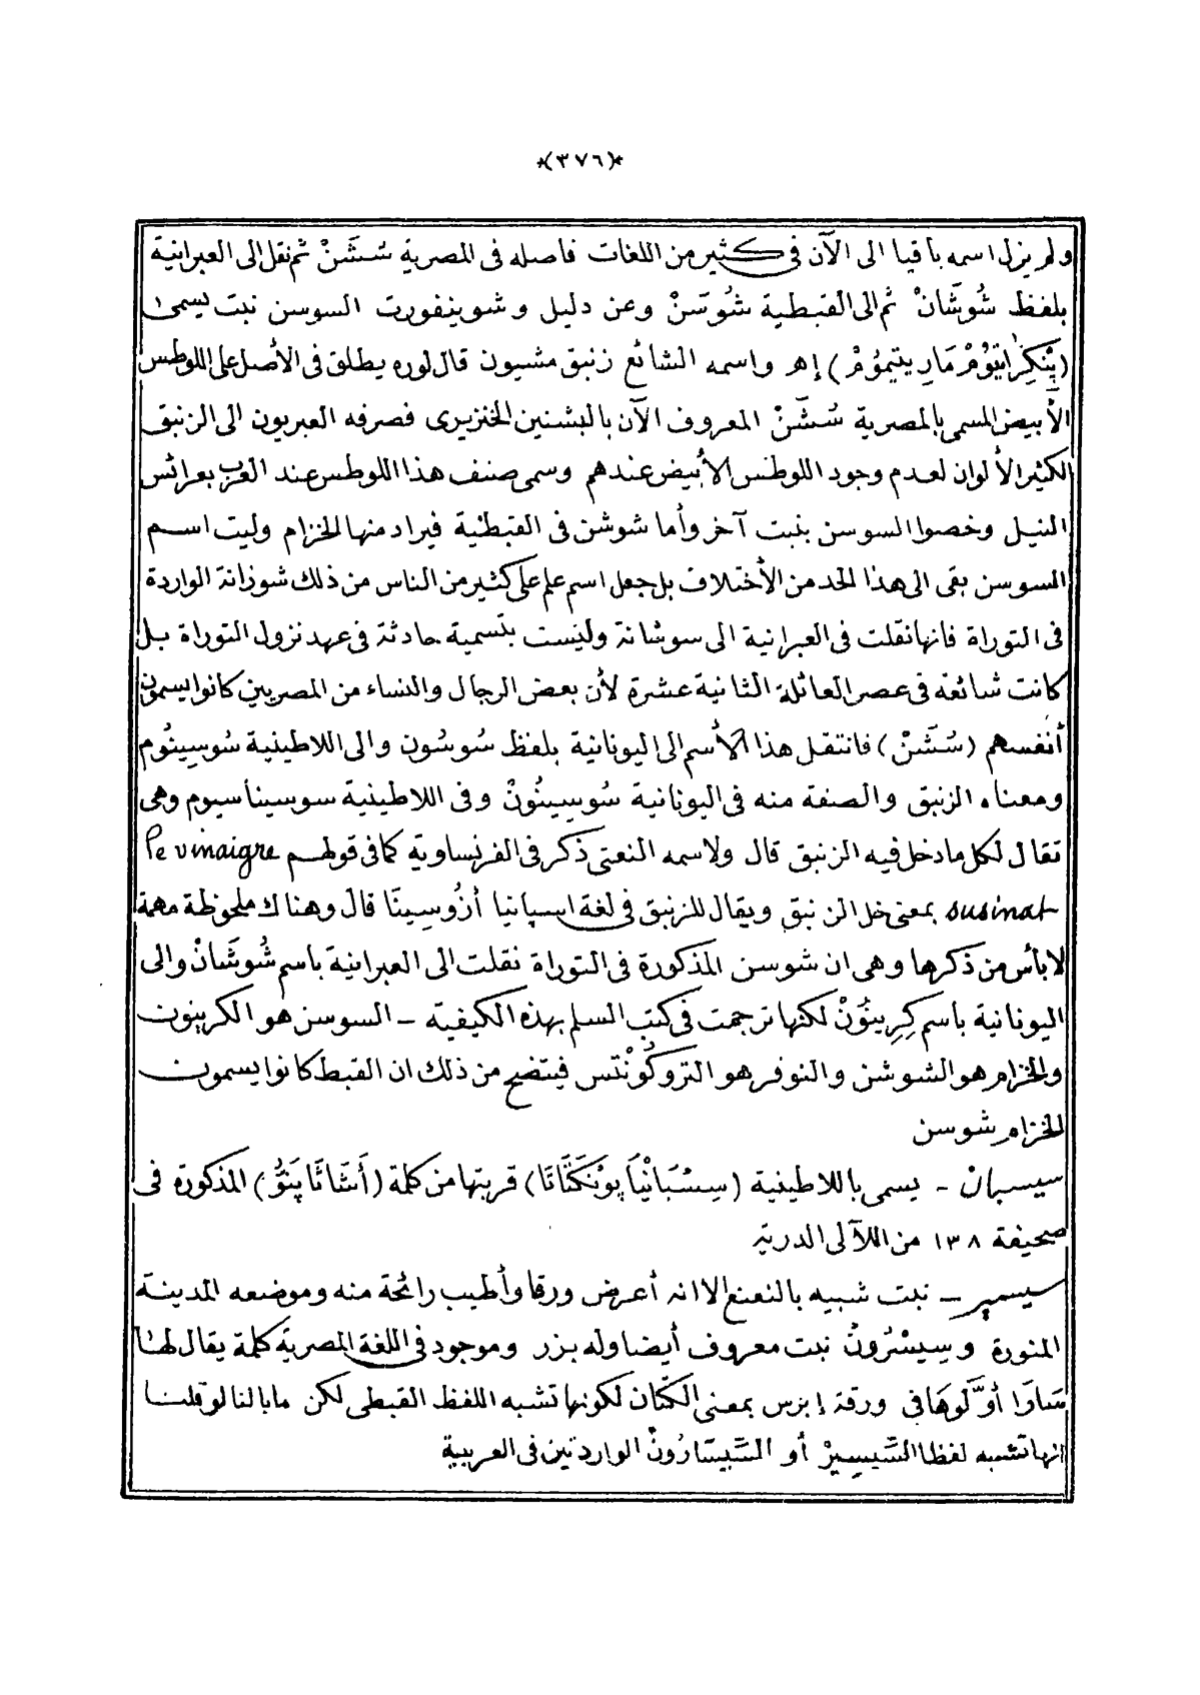 *(٣٧٦)*
ولم يزل اسمه باقيا الى الآن فى كثير من اللغات فاصله فى المصرية سُشَشَنْ ثم نقل الى العبرانية
بلفظ شُوشَانْ ثم الى القبطية شُوسَنْ وعن دليل وشوينفورت السوسن نبت يسمى
(پَنْكِرَاتيُومْ مَارِيتيمُومْ) إهـ واسمه الشائع زنبق مشيون قال لوره يطلق فى الأصل على اللوطس
الأبيض المسمى بالمصرية سُشَّنْ المعروف الآن بالبشنين الخنزيرى فصرفه العبريون الى الزنبق
الكثير الألوان لعدم وجود اللوطس الأبيض عندهم وسمى صنف هذا اللوطس عند العرب بعرائس
النيل وخصوا السوسن بنبت آخر وأما شوشن فى القبطية فيراد منها الخزام وليت اسم
السوسن بقى الى هذا الحد من الأختلاف بل جعل اسم علم على كثير من الناس من ذلك شوزانة الواردة
فى التوراة فانها نقلت فى العبرانية الى سوشانة وليست بتسمية حادثة فى عهد نزول التوراة بل
كانت شائعة فى عصر العائلة الثانية عشرة لأن بعض الرجال والنساء من المصريين كانوا يسمون
أنفسهم (سُشَنْ) فانتقل هذا الأسم الى اليونانية بلفظ سُوسُون والى اللاطينية سُوسِينُوم
ومعناه الزنبق والصفة منه فى اليونانية سُوسِينُونْ وفى اللاطينية سوسيناسيوم وهى
تقال لكل ما دخل فيه الزنبق قال ولاسمه النعتى ذكر فى الفرنساوية كما فى قولهم le vinaigre
susinat بمعنى خل الزنبق ويقال للزنبق فى لغة اسپانيا أزُوسِينَا قال وهناك ملحوظة مهمة
لا بأس من ذكرها وهى ان شوسن المذكورة فى التوراة نقلت الى العبرانية باسم شُوشَانْ والى
اليونانية باسم كِرِينُونْ لكنها ترجمت فى كتب السلم بهذه الكيفية – السوسن هو الكرينون
والخزام هو الشوشن والنوفر هو التروكُونْتس فيتضح من ذلك ان القبط كانوا يسمون
الخزام شوسن
سيسبانْ – يسمى باللاطينية (سِسْبَانْيَا پونْكَتَّاتَا) قربتها من كلمة المذكورة فى
صحيفة ١٣٨ من اللآلى الدرية
سيسمبر – نبت شبيه بالنعنع الا انه أعرض ورقا وأطيب رائحة منه وموضعه المدينة
المنورة وسِيسْرُونْ نبت معروف أيضا وله بزر وموجود فى اللغة المصرية كلمة يقال لها
سَاوَا أوّلوها فى ورقة إبرس بمعنى الكَتّان لكونها تشبه اللفظ القبطى لكن ما بالنا لو قلنا
انها تشبه لفظا السَّيسِيرْ أو السَّيسَارُونْ الواردتين فى العربية